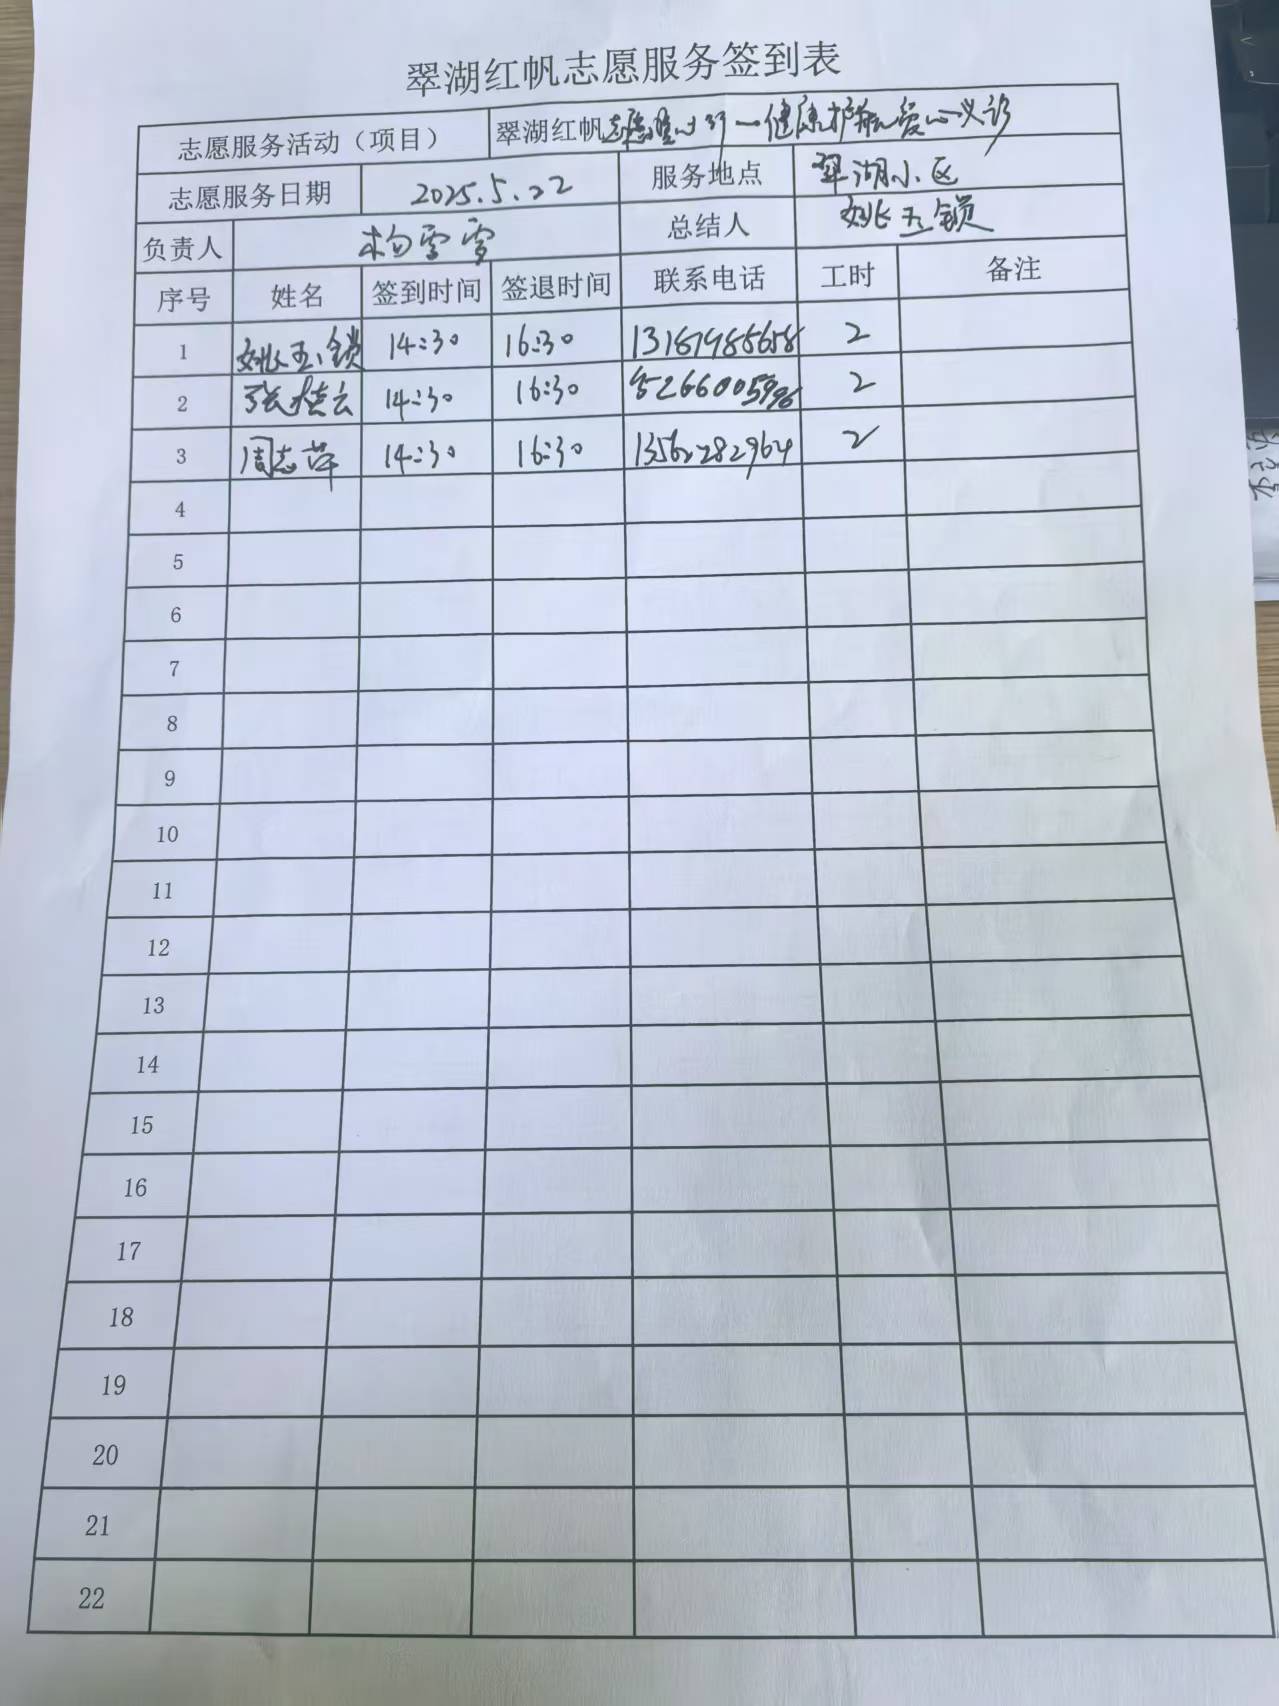 翠湖红帆志愿服务签到表
志愿服务活动（项目） 翠湖红帆志愿 健康护航爱心义诊
志愿服务日期 2025.5.22 服务地点 翠湖小区
负责人 杨雪雪 总结人 姚玉锁
序号 姓名 签到时间 签退时间 联系电话 工时 备注
1 姚玉锁 14:30 16:30 2
2 14:30 16:30 2
3 周志萍 14:30 16:30 13562282964 2
4
5
6
7
8
9
10
11
12
13
14
15
16
17
18
19
20
21
22